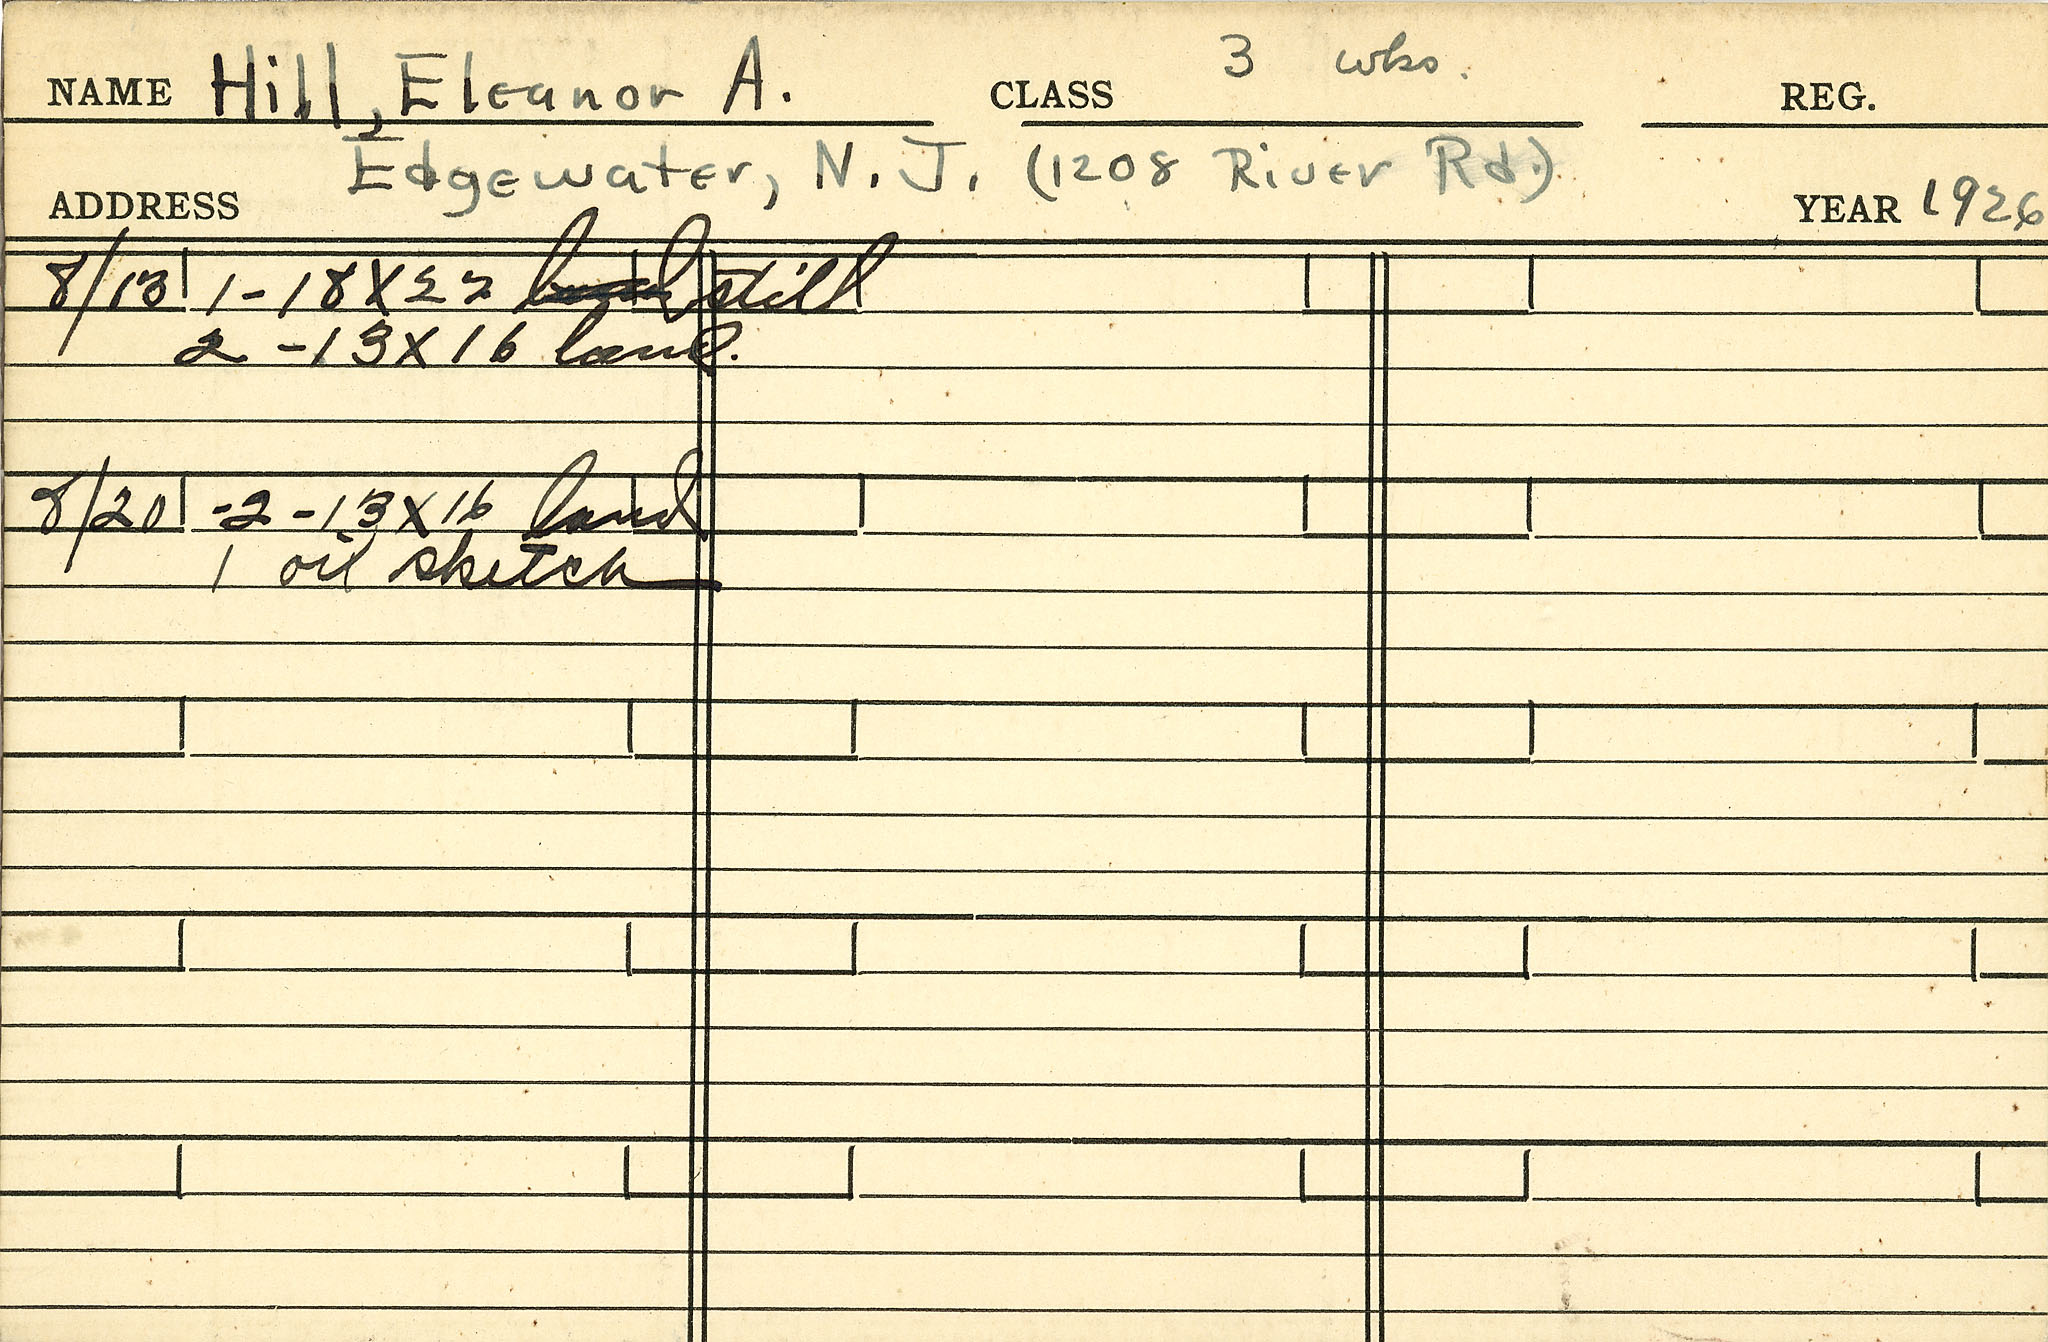 NAME Hill, Eleanor A. CLASS 3 wks. REG.
ADDRESS Edgewater, N. J. (1208 River Rd.) YEAR 1926
8/13 1-18X22 land still
2 -13X16 land.
8/20 -2 -13X16 land
1 oil sketch